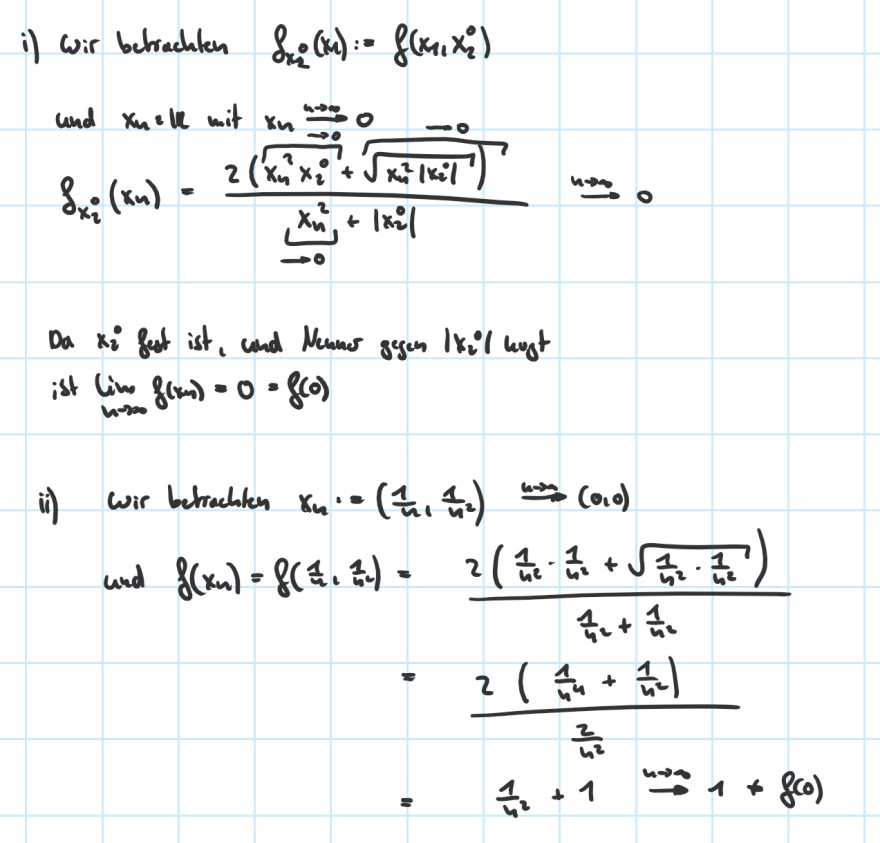 i) Wir betrachten f_{x_2^0}(x_1) := f(x_1, x_2^0)
und x_n ∈ ℝ mit x_n \xrightarrow{n→∞} 0
f_{x_2^0}(x_n) = \frac{2(\overbrace{x_n^2 x_2^0}^{→0} + \overbrace{\sqrt{x_n^2 |x_2^0|}}^{→0})}{\underbrace{x_n^2}_{→0} + |x_2^0|} \xrightarrow{n→∞} 0
Da x_2^0 fest ist, und Nenner gegen |x_2^0|
ist \lim_{n→∞} f(x_n) = 0 = f(0)
ii) Wir betrachten x_n := (\frac{1}{n}, \frac{1}{n^2}) \xrightarrow{n→∞} (0,0)
und f(x_n) = f(\frac{1}{n}, \frac{1}{n^2}) = \frac{2(\frac{1}{n^2} · \frac{1}{n^2} + \sqrt{\frac{1}{n^2} · \frac{1}{n^2}})}{\frac{1}{n^2} + \frac{1}{n^2}}
= \frac{2(\frac{1}{n^4} + \frac{1}{n^2})}{\frac{2}{n^2}}
= \frac{1}{n^2} + 1 \xrightarrow{n→∞} 1 ≠ f(0)